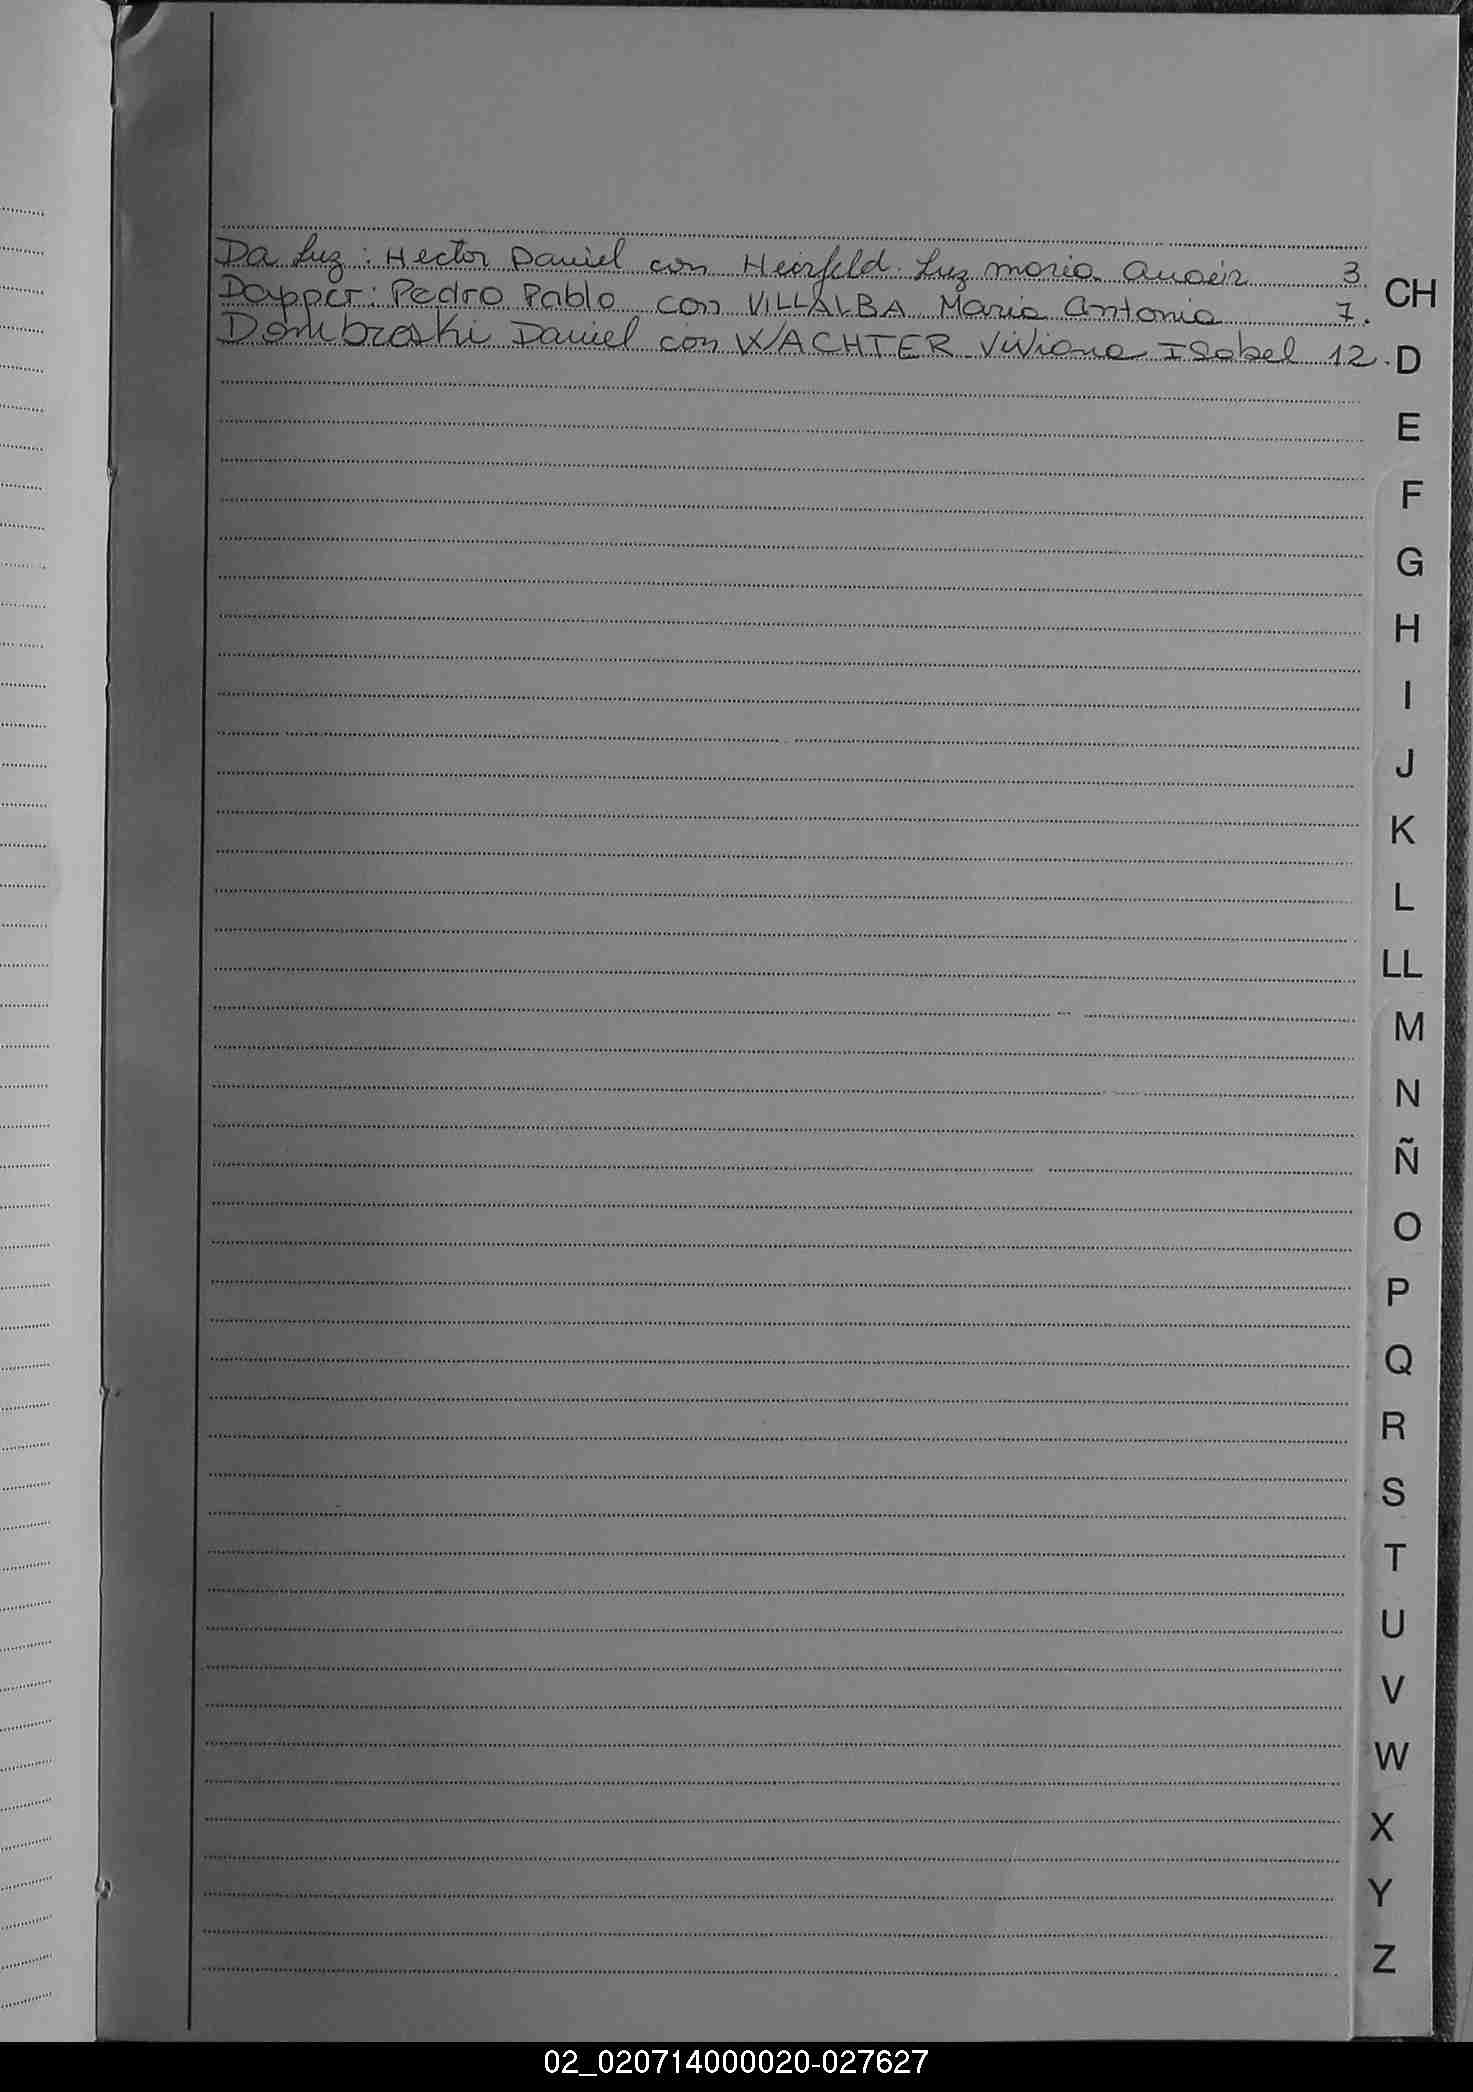 Da Luz: Hector Daniel con Heinfeld. Luz maria 3.
Dapper: Pedro Pablo con VILLALBA Maria Antonia 7.
Dombroski Daniel con WACHTER Viviana Isabel 12.
CH
D
E
F
G
H
I
J
K
L
LL
M
N
Ñ
O
P
Q
R
S
T
U
V
W
X
Y
Z
02_020714000020-027627